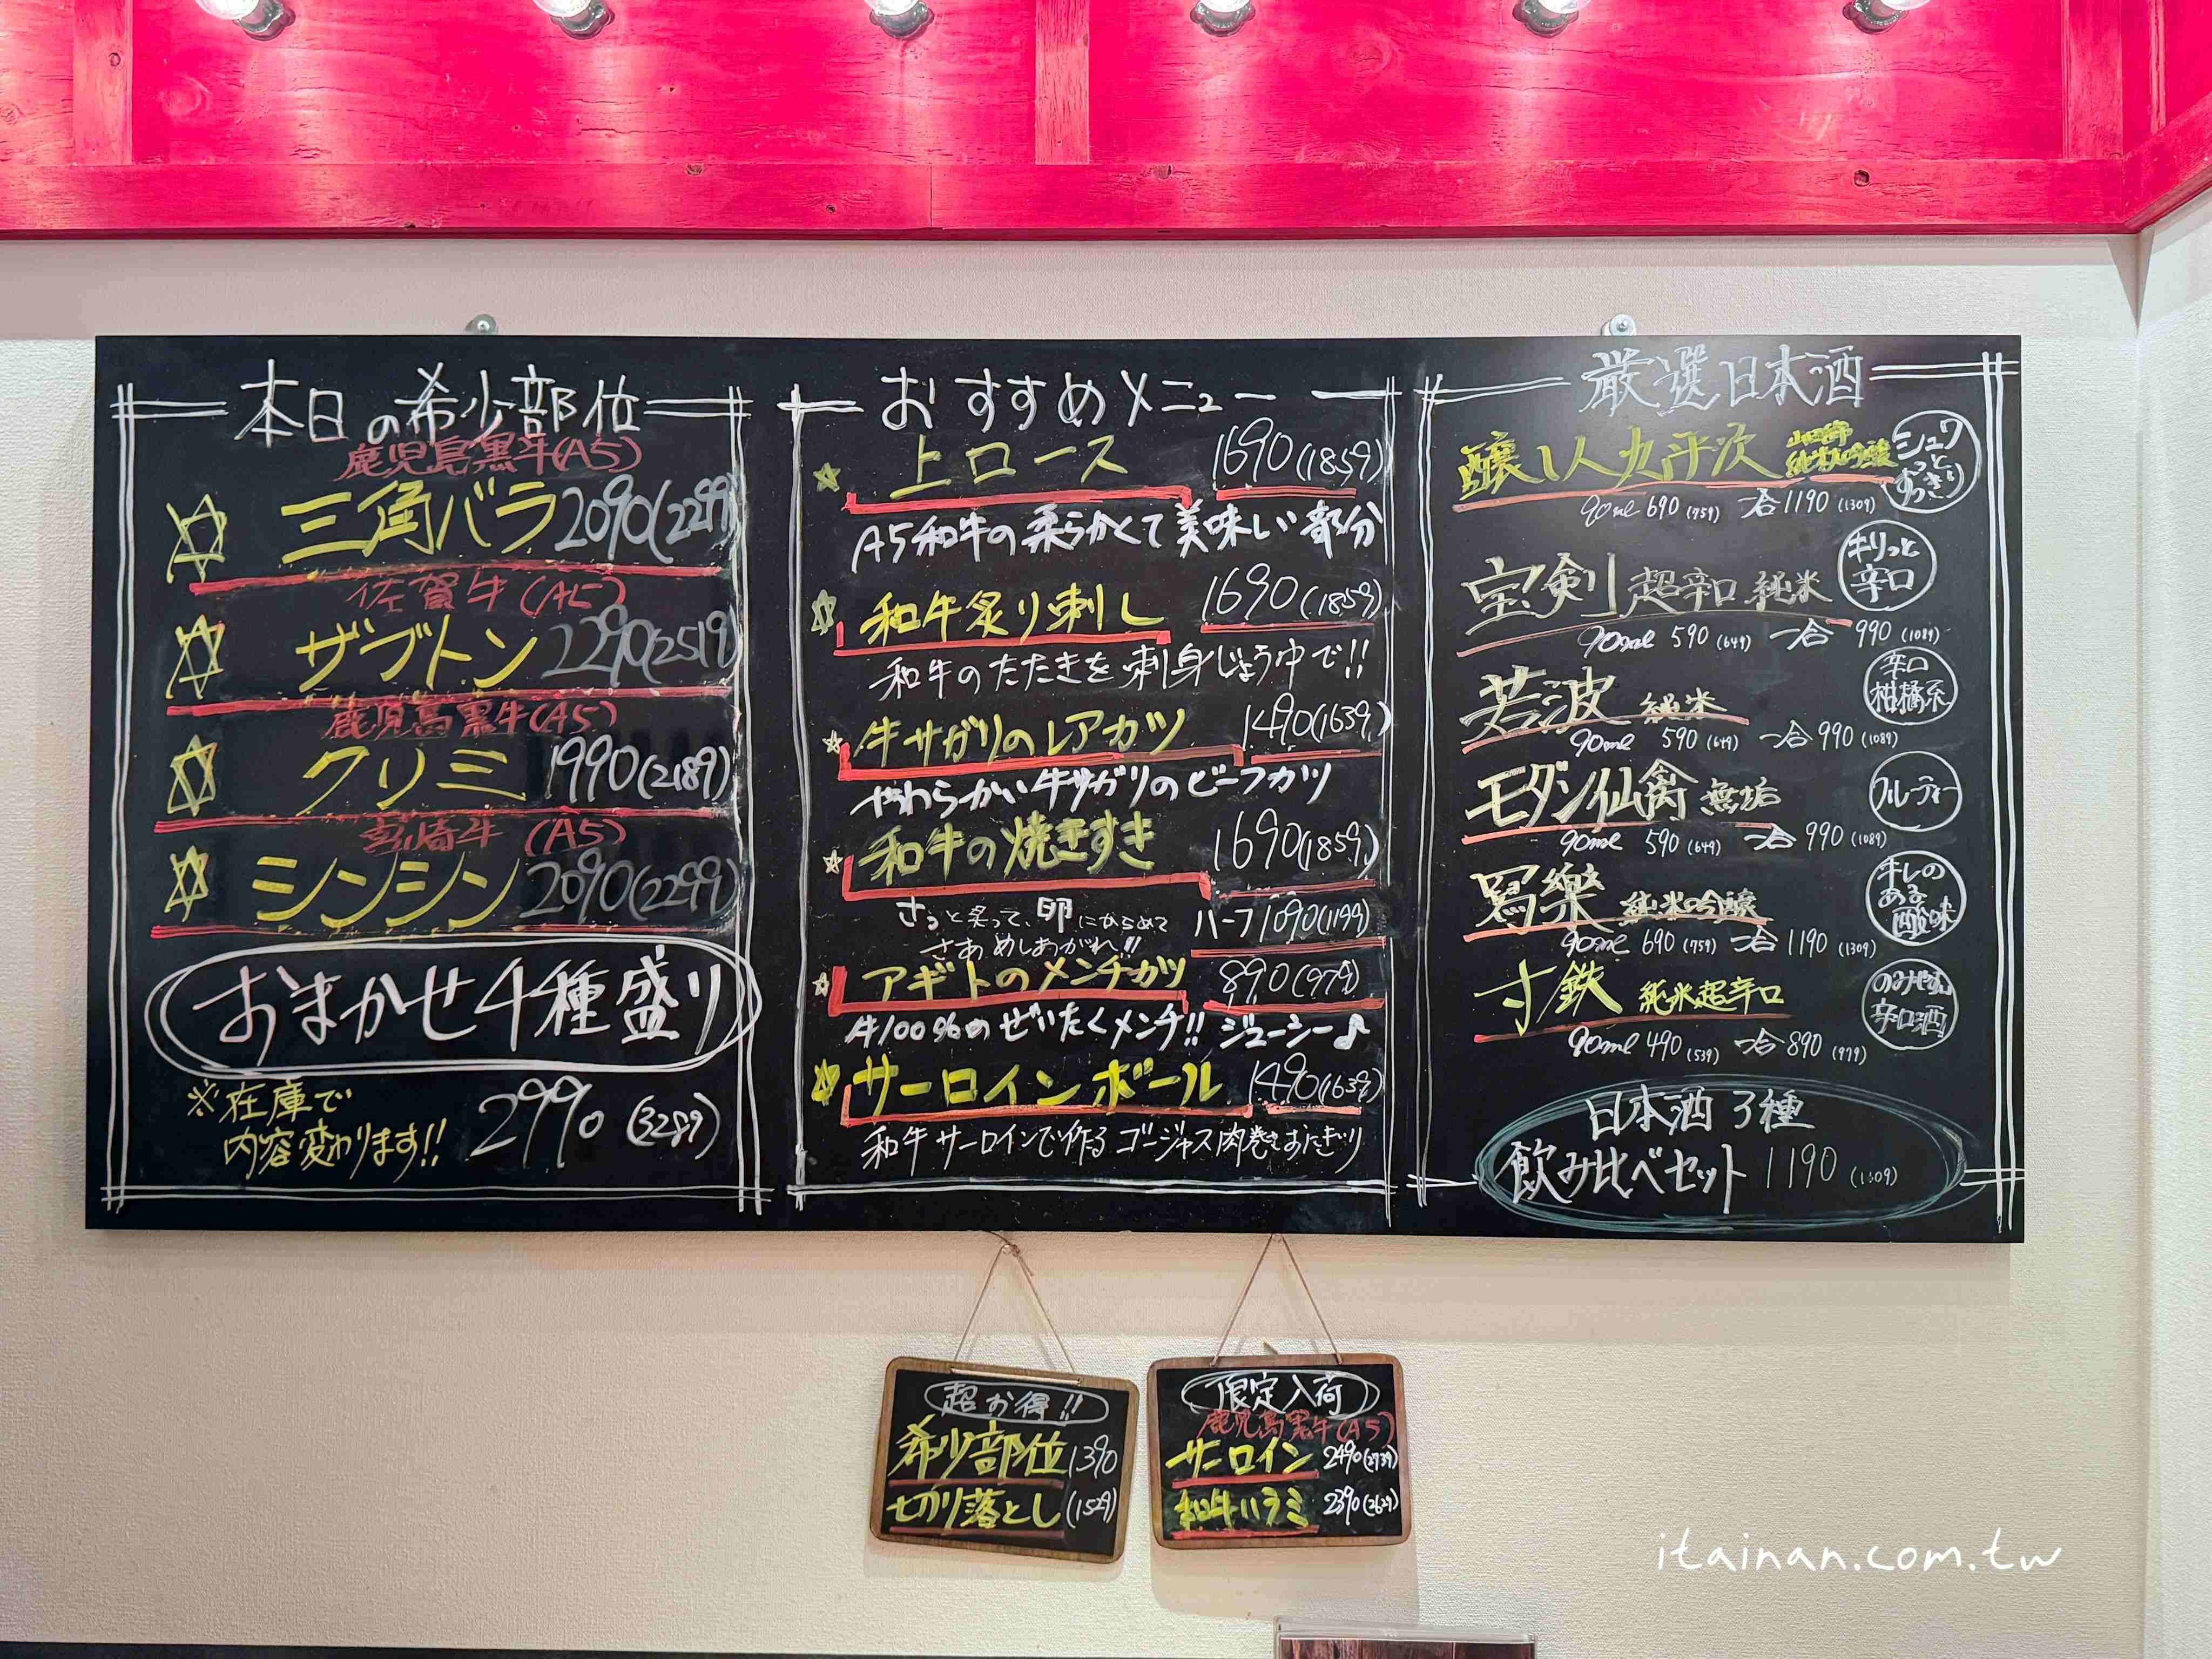 本日の希少部位
鹿児島黒牛(A5)
三角バラ 2090(2299)
佐賀牛(A5)
ザブトン 2290(2519)
鹿児島黒牛(A5)
クリミ 1990(2189)
宮崎牛(A5)
シンシン 2090(2299)
おまかせ4種盛り
※在庫で
内容変わります!! 2990 (3289)
おすすめメニュー
上ロース 1690(1859)
A5和牛の柔らかくて美味しい部分
和牛炙り刺し 1690(1859)
和牛のたたきを刺身じょう中で!!
牛サガリのレアカツ 1490(1639)
やわらかい牛サガリのビーフカツ
和牛の焼きすき 1690(1859)
さっと炙って、卵にからめて ハーフ1090(1199)
さあめしあがれ!!
アギトのメンチカツ 890(979)
牛100%のぜいたくメンチ!! ジューシー♪
サーロインボール 1490(1639)
和牛サーロインで作るゴージャス肉巻きおにぎり
厳選日本酒
醸し人九平次 山田錦 純米大吟醸
シュワっとすっきり
90ml 690(759) 一合1190(1309)
宝剣 超辛口 純米
キリっと辛口
90ml 590(649) 一合 990(1089)
若波 純米
辛口柑橘系
90ml 590(649) 一合990(1089)
モダン仙禽 無垢
フルーティー
90ml 590(649) 一合 990(1089)
寫樂 純米吟醸
キレのある酸味
90ml 690(759) 一合1190(1309)
寸鉄 純米超辛口
のみやすい辛口酒
90ml 490(539) 一合890(979)
日本酒3種
飲み比べセット 1190(1309)
超お得!!
希少部位 1390
切り落とし (1529)
限定入荷
鹿児島黒牛(A5)
サーロイン 2490(2739)
和牛ハラミ 2390(2629)
itainan.com.tw